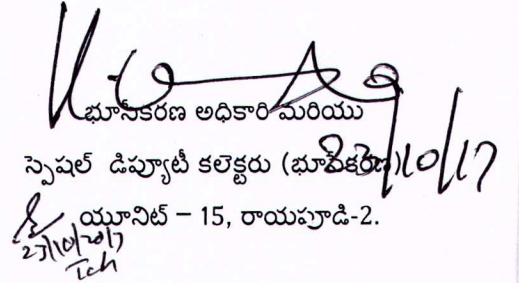 భూసేకరణ అధికారి మరియు
స్పెషల్ డిప్యూటీ కలెక్టరు (భూసేకరణ)
23/10/17
యూనిట్ – 15, రాయపూడి-2.
23/10/2017